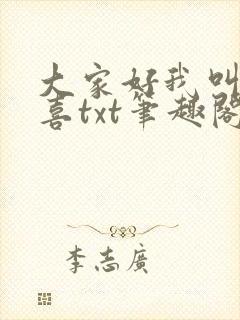 大家好我叫
喜txt笔趣阁
李志廣